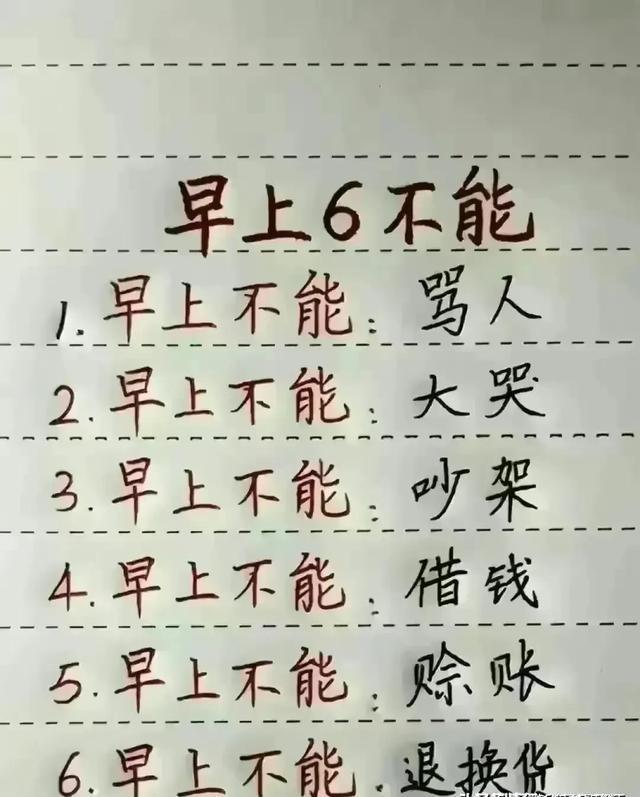 早上6不能
1.早上不能:骂人
2.早上不能:大哭
3.早上不能:吵架
4.早上不能:借钱
5.早上不能:赊账
6.早上不能:退换货